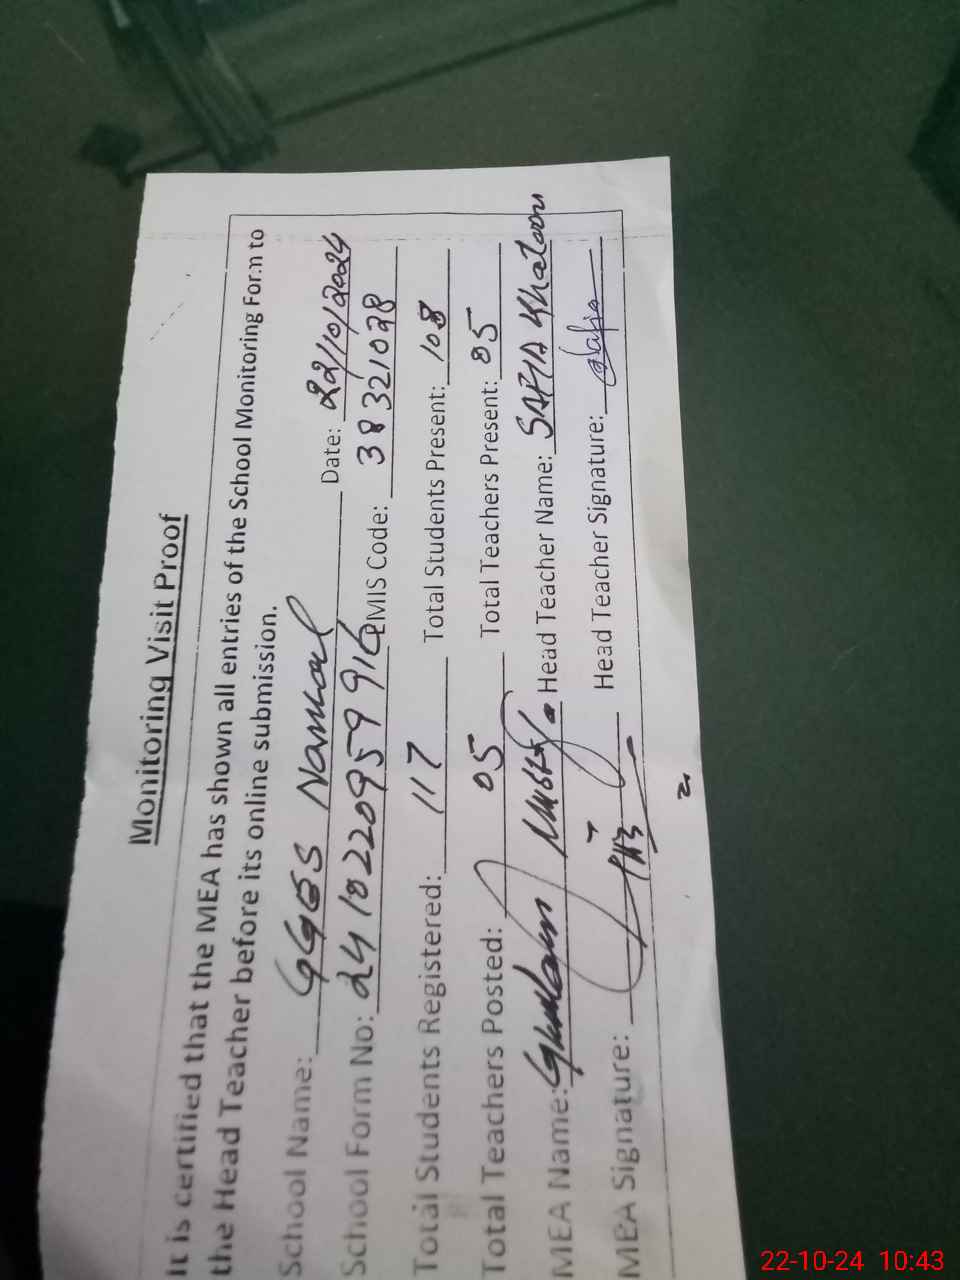 Monitoring Visit Proof
It is certified that the MEA has shown all entries of the School Monitoring Form to
the Head Teacher before its online submission.
School Name: GGES Nammal Date: 22/10/2024
School Form No: 2410220959916 EMIS Code: 38321028
Total Students Registered: 117 Total Students Present: 108
Total Teachers Posted: 05 Total Teachers Present: 05
MEA Name: Ghulam Mustafa Head Teacher Name: SAFIA Khatoon
MEA Signature: Head Teacher Signature: Safia
22-10-24 10:43